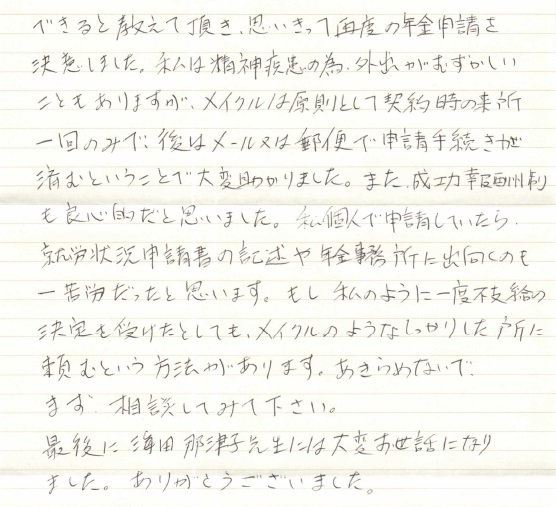 できると教えて頂き、思いきって再度の年金申請を
決意しました。私は精神疾患の為、外出がむずかしい
こともありますが、メイクルは原則として契約時の来所
一回のみで、後はメール又は郵便で申請手続きが
済むということで大変助かりました。また、成功報酬制
も良心的だと思いました。私個人で申請していたら、
就労状況申請書の記述や年金事務所に出向くのも
一苦労だったと思います。もし私のように一度不支給の
決定を受けたとしても、メイクルのようなしっかりした所に
頼むという方法があります。あきらめないで、
まず、相談してみて下さい。
最後に 田那津子先生には大変お世話になり
ました。ありがとうございました。